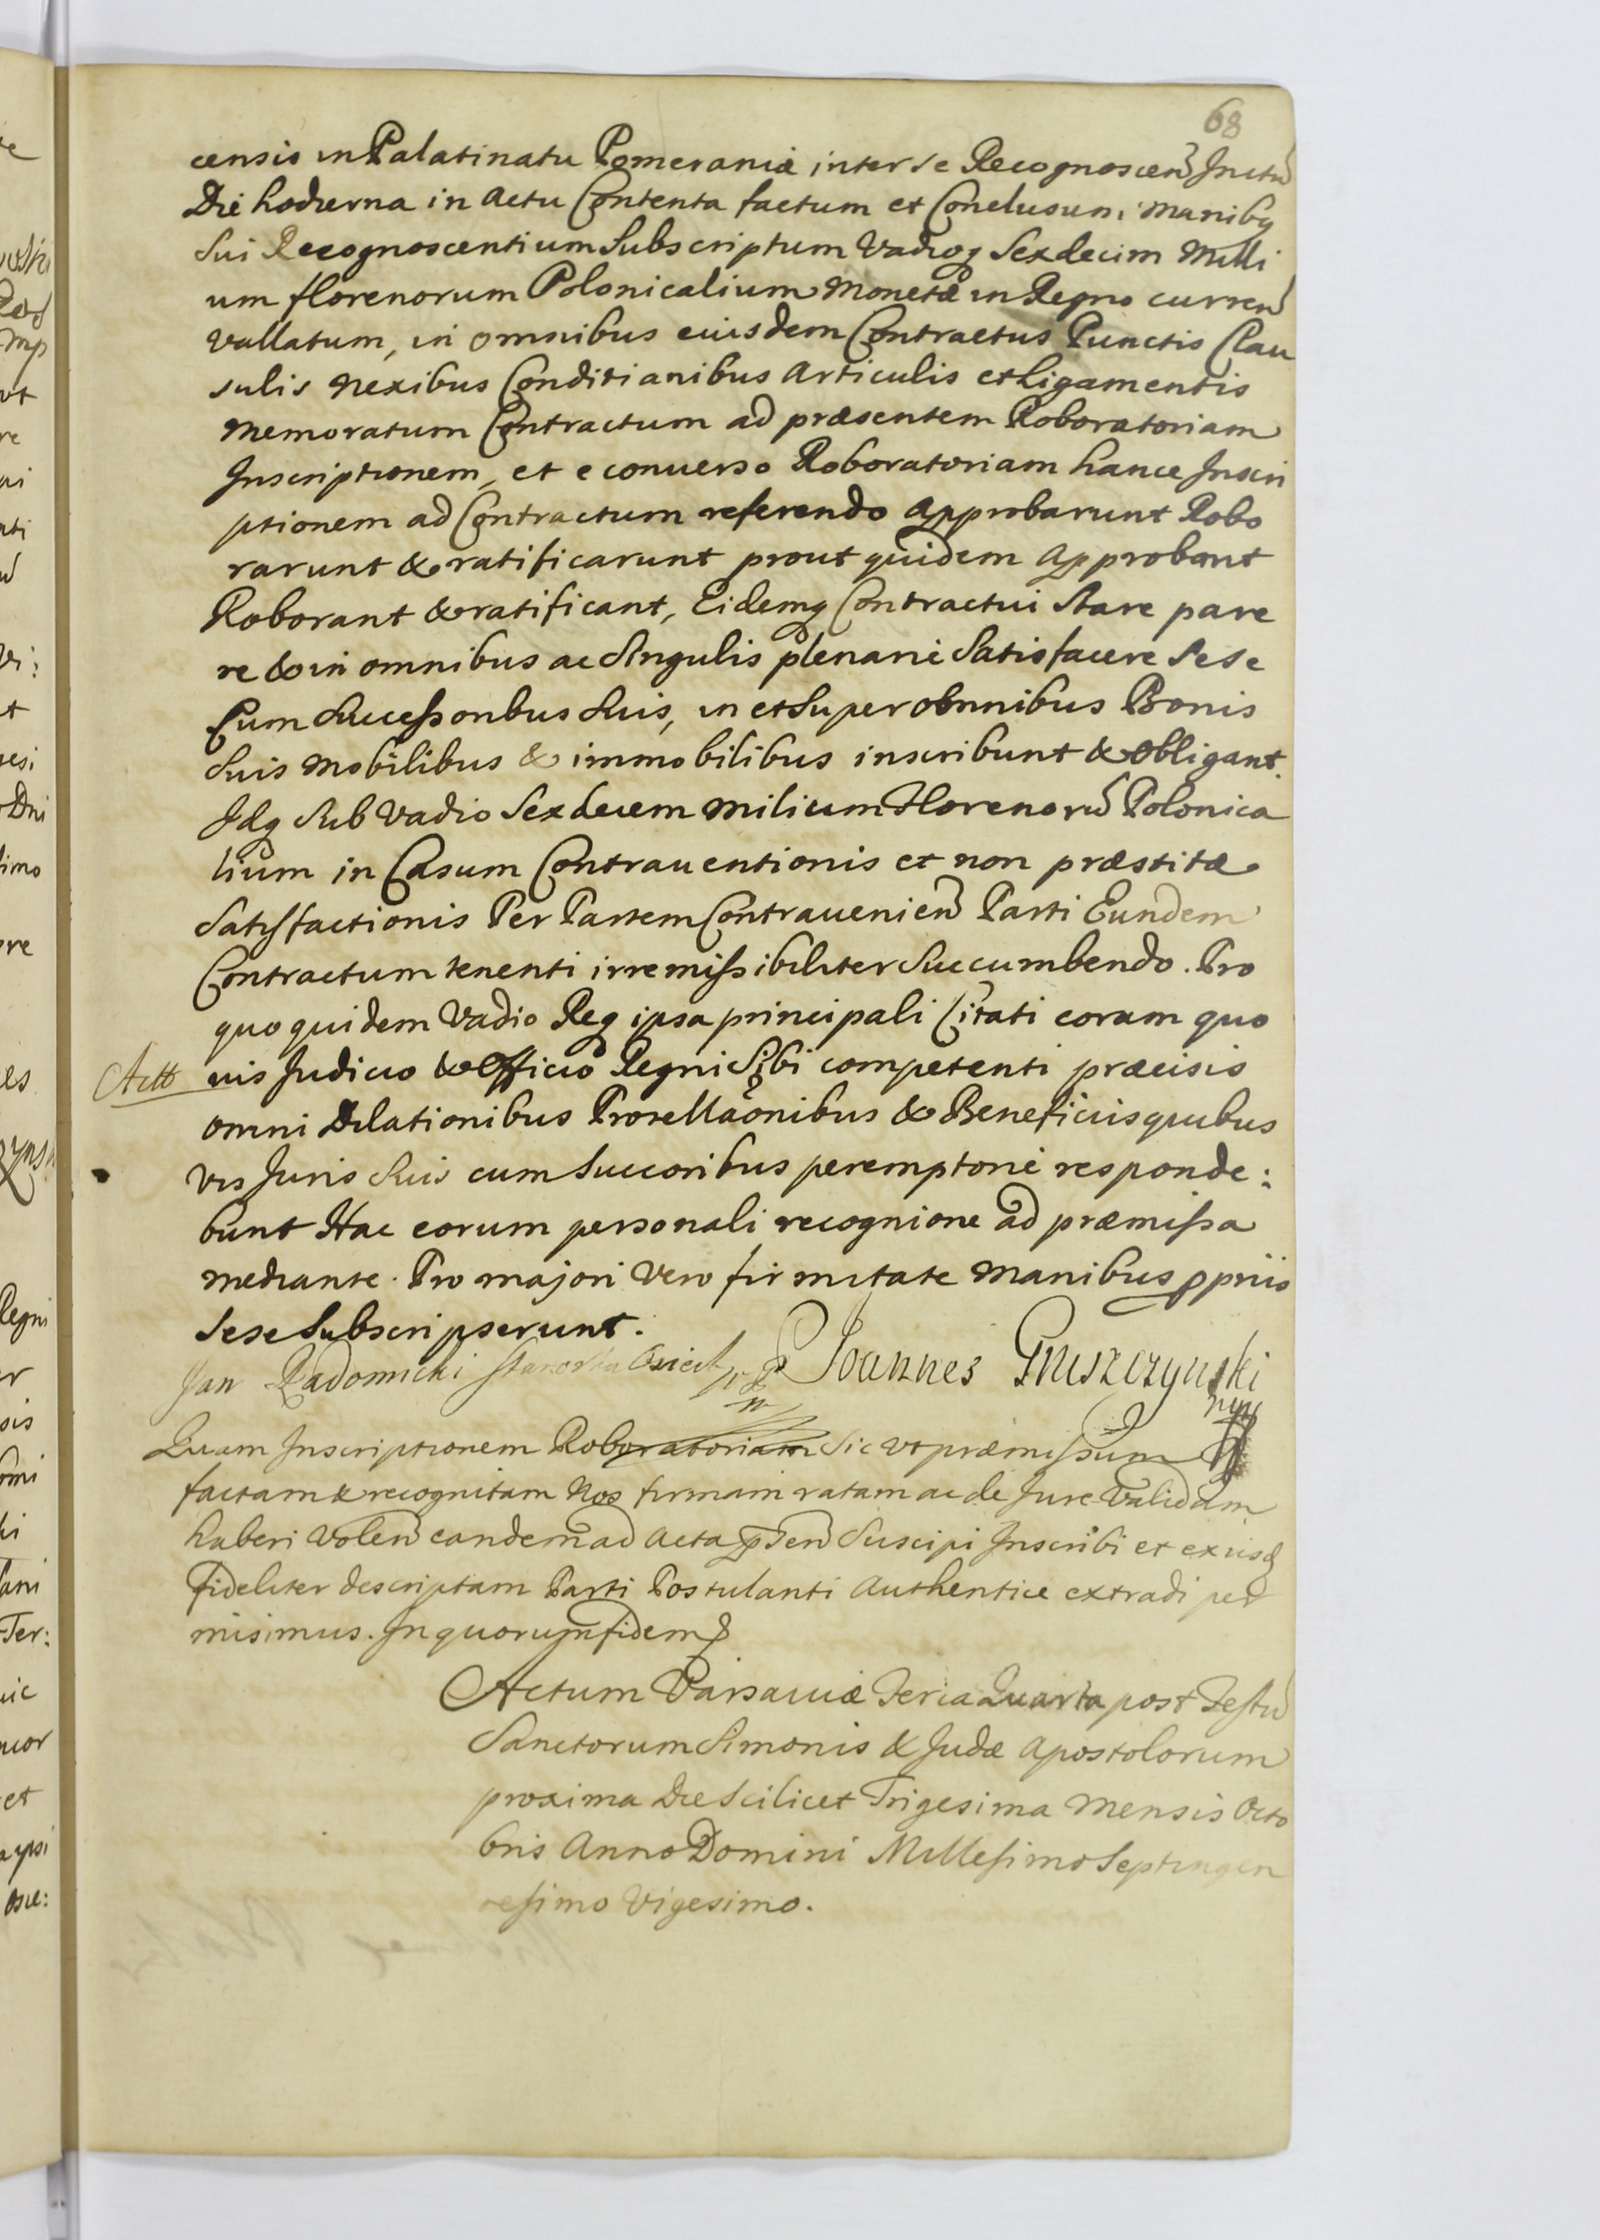 68
censis in Palatinatu Pomeraniæ inter se Recognoscen̄ Initū
Die hodierna in Actu Contenta factum et Conclusum Manibq
Sui Recognoscentium Subscriptum Vadioq Sexdecim Milli
um florenorum Polonicalium Monetæ in Regno curren̄
vallatum, in omnibus eiusdem Contractus Punctis Clau
sulis Nexibus Conditianibus Articulis et Ligamentis
Memoratum Contractum ad præsentem Roboratoriam
Inscriptionem, et e conuerso Roboratoriam hance Inscri
ptionem ad Contractum referendo Approbarunt Robo
rarunt & ratificarunt prout quidem Approbant
Roborant & ratificant, Eidemq Contractui Stare pare
re & in omnibus ac Singulis plenarie Satisfacere Sese
Cum Successoribus Suis, in et Super omnibus Bonis
Suis Mobilibus & immobilibus inscribunt & Obligant.
Idq Sub Vadio Sexdecem Milium Florenorū Polonica
lium in Casum Contrauentionis et non præstitæ
Satisfactionis Per Partem Contrauenien̄ Parti Eundem
Contractum tenenti irremissibiliter Succumbendo. Pro
quo quidem Vadio Req ipsa principali Citati coram quo
Actt uis Judicio & Officio Regni Sibi competenti præcisis
omni Dilationibus Procellaōnibus & Beneficiis quibus
vis Juris Suis cum Succoribus peremptorie responde:
bunt Hac eorum personali recognione ad præmissa
mediante. Pro majori Vero firmitate Manibus ppriis
Sese Subscripserunt.
Jan Radomicki Starosta Osiect
Joannes Gruszczynski
mpp
Quam Inscriptionem Roboratoriam Sic ut præmissum
factam & recognitam Nos firmam ratam ac de Jure Validam
haberi Volen̄ eandem ad Acta pn̄ten̄ Suscipi Inscribi et ex iisd
fideliter descriptam Parti Postulanti Authentice extradi per
misimus. In quorum fidem
Actum Varsauiæ Feria Quarta post Festū
Sanctorum Simonis & Judæ Apostolorum
proxima Die Scilicet Trigesima Mensis Octo
bris Anno Domini Millesimo Septingen
tesimo Vigesimo.